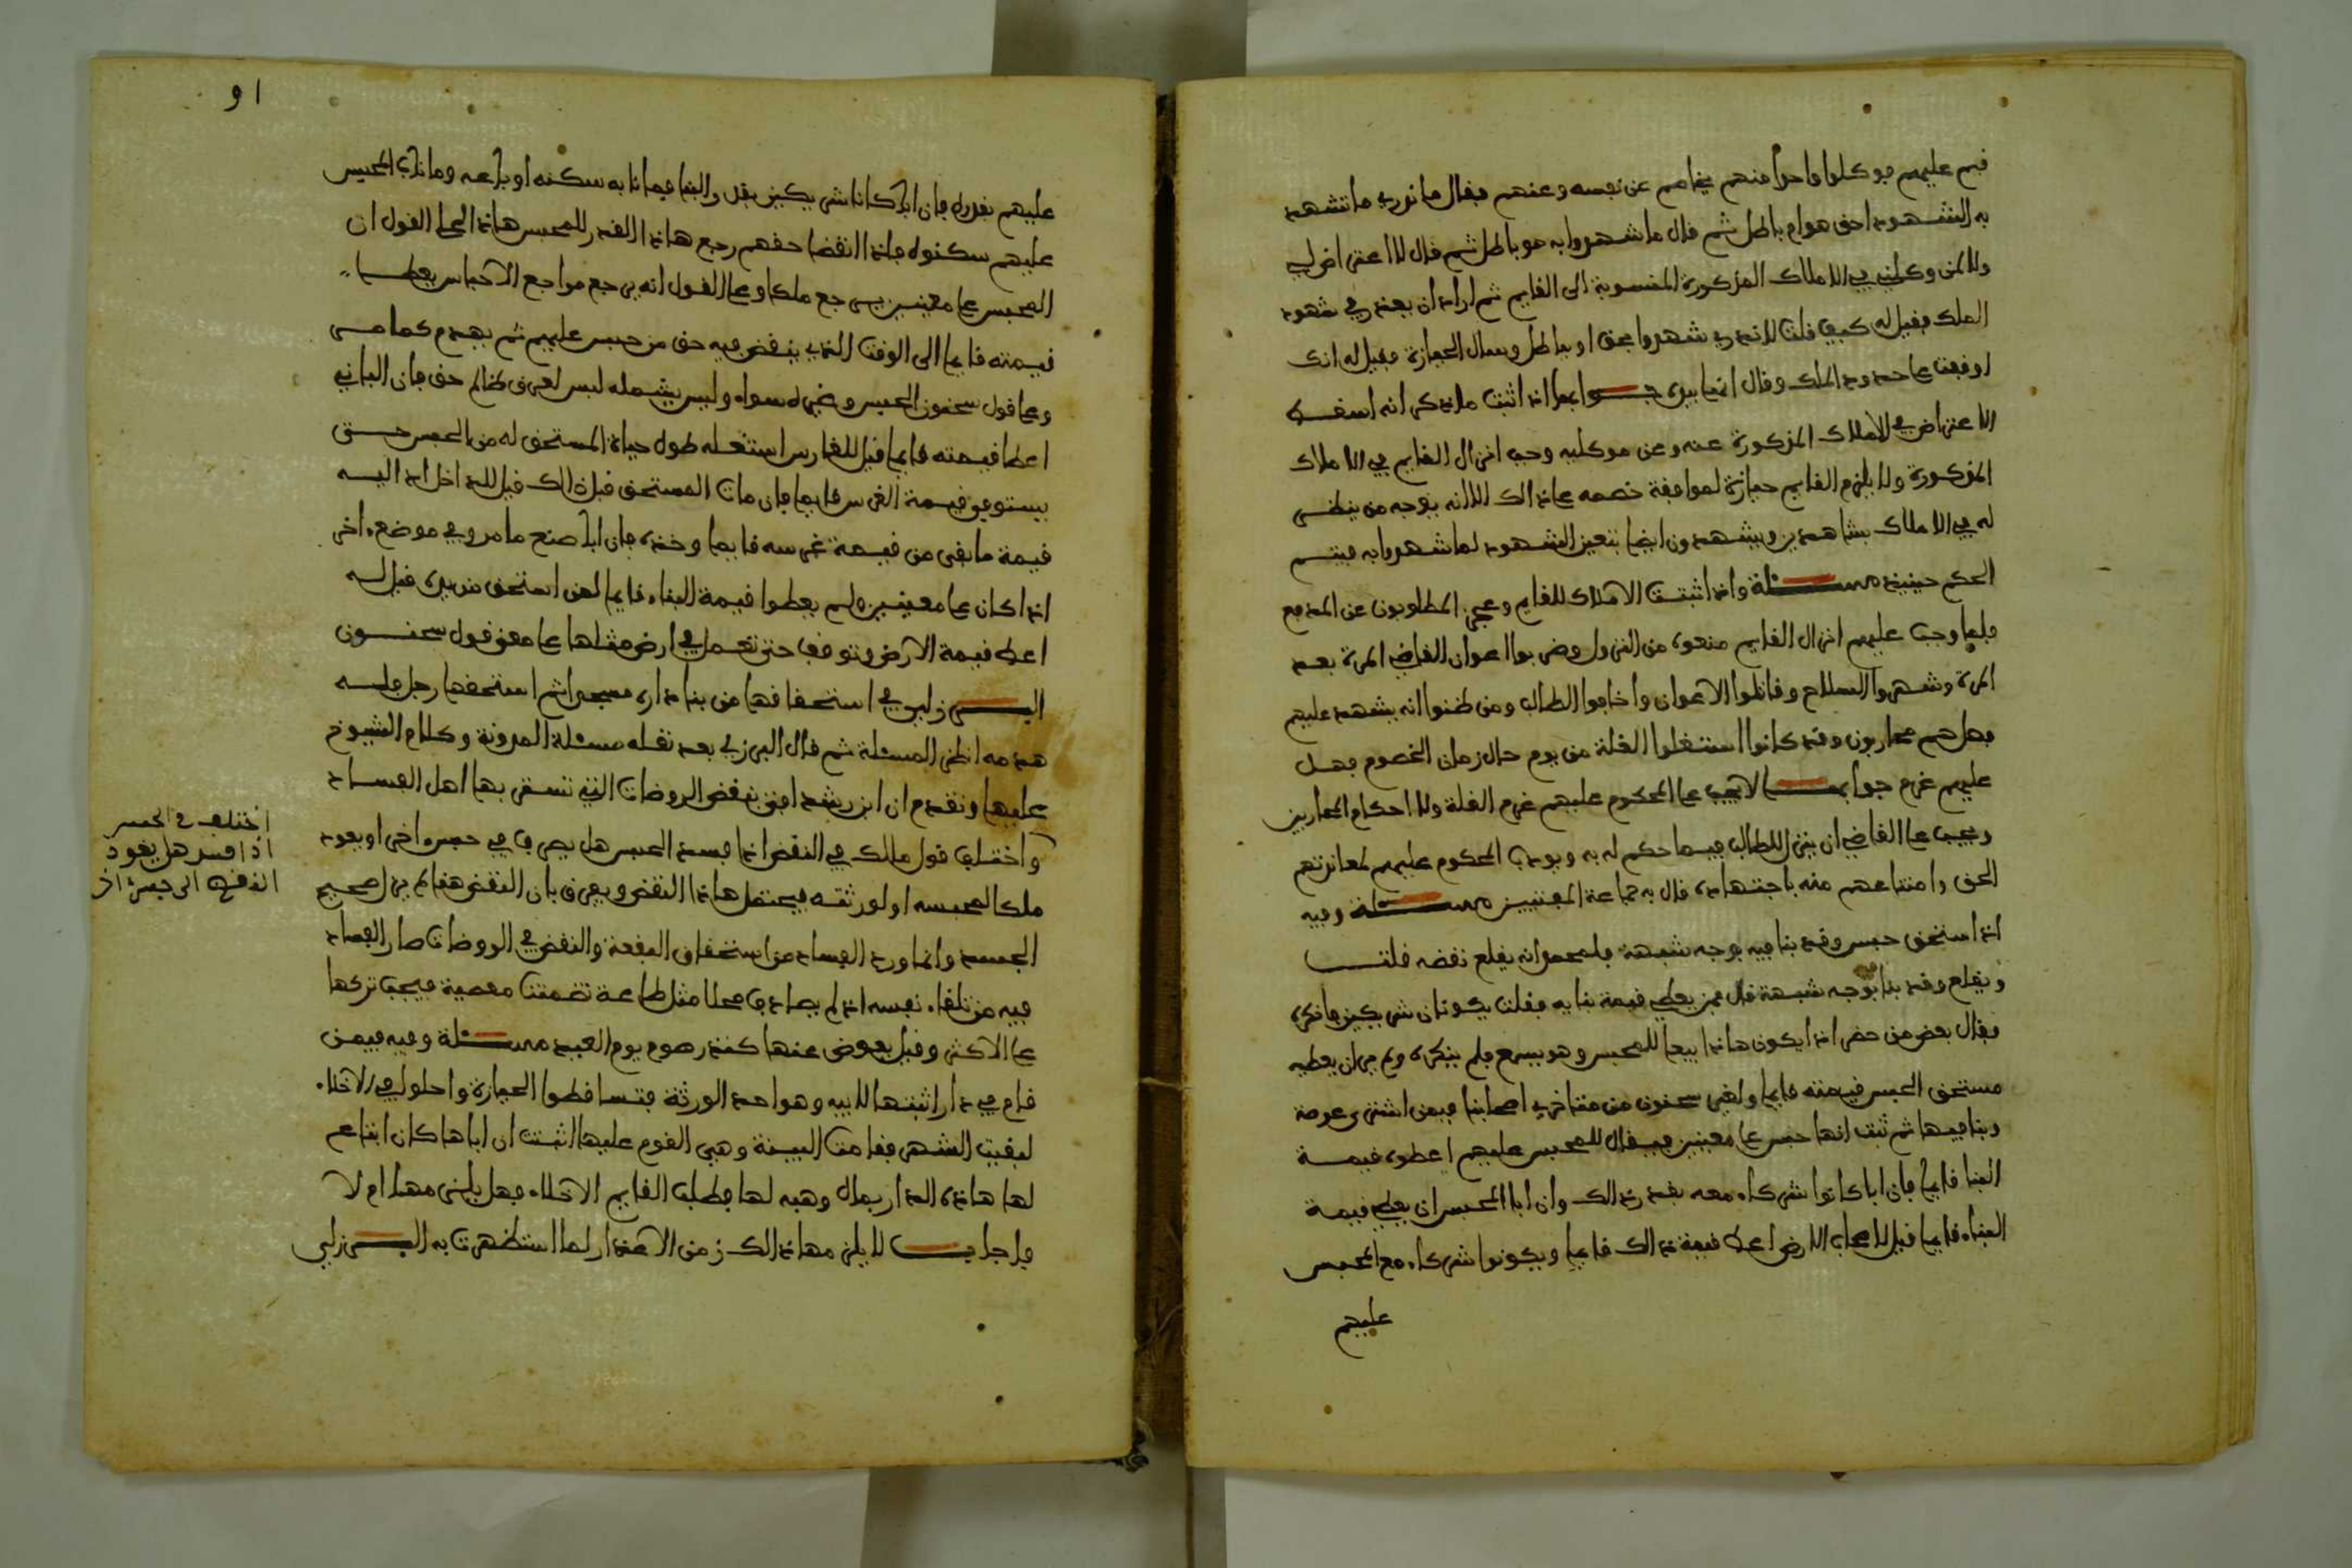 فيم عليهم فوكلوا واحدا منهم يخاصم عن نفسه وعنهم فقال ما ندري ما تشهد
به الشهود احق هو ام باطل ثم قال ما شهدوا به هو باطل ثم قال لا اعتراض لي
ولا لمن وكلني في الاملاك المذكورة المنسوبة الى القايم ثم اراد ان يقدح في شهود
الملك فقيل له كيف قلت لا ندري شهدوا بحق او بباطل وسال الحيازة فقيل له انك
اوقفت على حدود الملك وقال انها بيدي جوابها اذا ثبت ما ذكر انه اسقط
الاعتراض في الاملاك المذكورة عنه وعن موكليه وجب انزال القايم في الاملاك
المذكورة ولا يلزم القايم حيازة لموافقة خصمه على ذالك الا انه يوجه من ينظر
له في الاملاك بشاهدين ويشهدون ايضا بتعيين الشهود لما شهدوا به فيتم
الحكم حينيذ مسئلة واذا ثبتت الاملاك للقايم وعجز المطلوبون عن المدفع
فلما وجب عليهم انزال القايم منعوه من النزول وضربوا اعوان القاضي المرة بعد
المرة وشهروا السلاح وقاتلوا الاعوان واخافوا الطالب ومن ظنوا انه يشهد عليهم
فهل هم محاربون وقد كانوا استغلوا الغلة من يوم حال زمان الخصوم فهل
عليهم غرم جوابها لا يجب على المحكوم عليهم غرم الغلة ولا احكام المحاربين
ويجب على القاضي ان ينزل للطالب فيما حكم له به ويودب المحكوم عليهم لمعاندتهم
الحق وامتناعهم منه باجتهاده قال به جماعة المفتيين مسئلة وفيه
اذا استحق حبس وقد بنا فيه بوجه شبهة فلمحمد انه يقلع نقضه قلت
ويقلع وقد بنا بوجه شبهة قال ممن يعطي قيمة بنايه فقلت يكونان شريكين فانكره
فقال بعض من حضر اذا يكون هاذا بيعا للحبس وهو يسمع فلم ينكره ولم ير ان يعطيه
مستحق الحبس قيمته قايما ولغير سحنون من متاخري اصحابنا فيمن اشترى عرصة
وبنا فيها ثم ثبت انها حبس على معينين فيقال للمحبس عليهم اعطوه قيمة
البنا قايما فان ابا كانوا شركاء معه بقدر ذالك وان ابا المحبس ان يعطي قيمة
البناء قايما قيل لاصحاب الارض اعط قيمة ذالك قايما ويكونوا شركاء مع المحبس
عليهم
او
عليهم بقدره فان ابا كانا شريكين بقدر البنا فما نابه سكنه او باعه وما ناب المحبس
عليهم سكنوه فاذا انقضا حقهم رجع هاذا القدر للمحبس هاذا على القول ان
المحبس على معينين يرجع ملكا وعلى القول انه يرجع مراجع الاحباس يعطى
قيمته قايما الى الوقت الذي ينقض فيه حق من حبس عليهم ثم يهدم كما مر
وعلى قول سحنون الحبس وغيره سواء وليس يشمله ليس لعرق ظالم حق فان الباني
اعطا قيمته قايما قيل للغارس استغله طول حياة المستحق له من الحبس حتى
يستوفي قيمة الغرس قايما فان مات المستحق قبل ذالك قيل للداخل اد اليه
قيمة ما بقي من قيمة غرسه قايما وخذه فان ابا صنع ما مر وفي موضع اخر
اذا كان على معينين ولم يعطوا قيمة البناء قايما لمن استحق من يده قيل له
اعط قيمة الارض وتوقف حتى تجعل في ارض مثلها على معنى قول سحنون
البرزلي في استحقاقها من بنا داره مسجدا ثم استحقها رجل فله
هدمه انظر المسئلة ثم قال البرزلي بعد نقله مسئلة المدونة وكلام الشيوخ
عليها وتقدم ان ابن رشد افتى بنقض الروضات التي تستقر بها اهل الفساد
واختلف قول مالك في النقض اذا فسد الحبس هل يصرف في حبس اخر او يعود
ملكا لمحبسه او لورثته فيحتمل هاذا النقض ويفرق بان النقض هنا لم يزل صحيح
الجسد وانما ورد الفساد من استحقاق البقعة والنقض في الروضات صار الفساد
فيه من تلقاء نفسه اذ لم يصادف محلا مثل طاعة تضمنت معصية فيجب تركها
على الاكثر وقيل يعوض عنها كنذر صوم يوم العيد مسئلة وفيه فيمن
قام في دار اثبتها لابيه وهو احد الورثة فتساقطوا الحيازة واحلوا في الاخلاء
لبقيت الشهر فقامت البينة وهي القوم عليها اثبتت ان اباها كان ابتاع
لها هاذه الدار بمال وهبه لها فطلب القايم الاخلاء فهل يلزمها ام لا
فاجاب لا يلزمها ذالك زمن الاعذار لما استظهرت به البرزلي
اختلف في الحبس
اذا فسد هل يعود
النقض الى حبس اخر